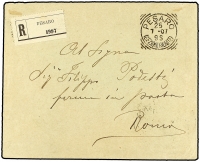 PESARO
R 1987
PESARO
25
7-07
9S
Al Signor
Sig. Filippo Podestà
fermo in posta
Roma